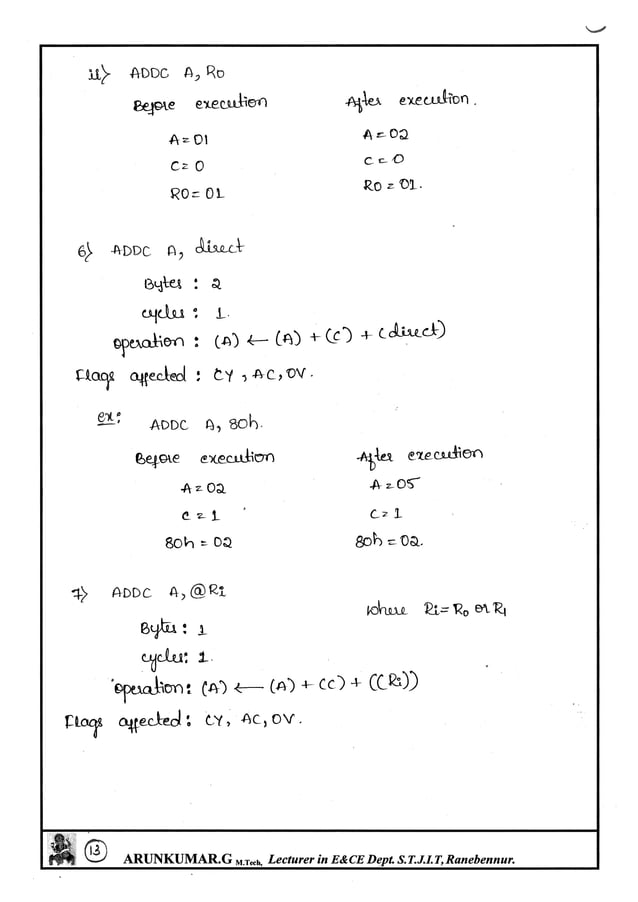 ii) ADDC A, R0
Before execution After execution.
A=01 A=02
C=0 C=0
R0=01 R0=01.
6) ADDC A, direct
Bytes : 2
cycles : 1.
operation : (A) ← (A) + (C) + (direct)
Flags affected : CY, AC, OV.
ex: ADDC A, 80h.
Before execution After execution
A=02 A=05
C=1 C=1
80h=02 80h=02.
7) ADDC A, @Ri
where Ri=R0 or R1
Bytes : 1
cycles: 1.
operation: (A) ← (A) + (C) + ((Ri))
Flags affected: CY, AC, OV.
13 ARUNKUMAR.G M.Tech, Lecturer in E&CE Dept. S.T.J.I.T, Ranebennur.